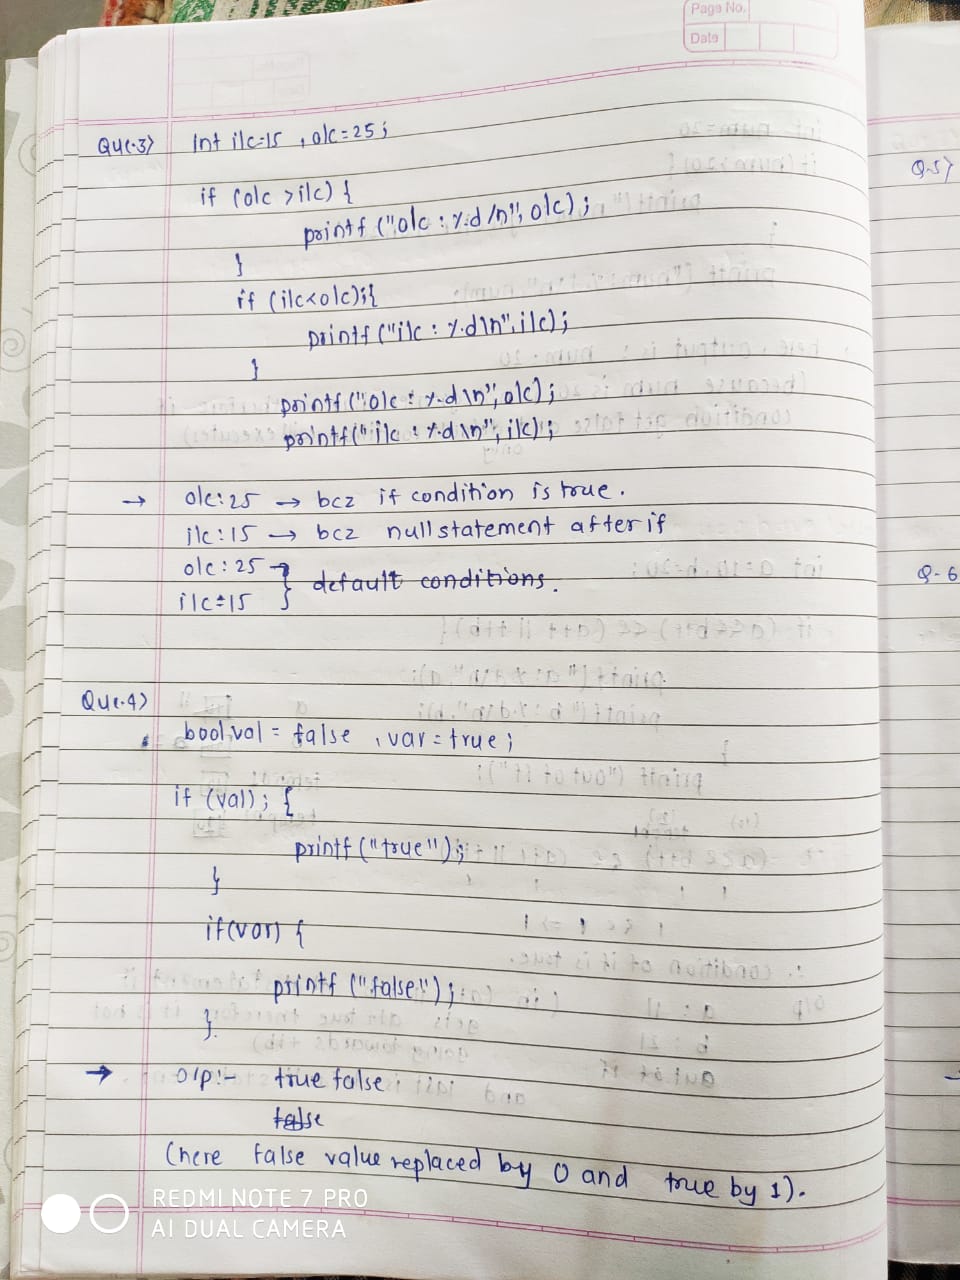 Page No.
Date
Que.3) Int ilc=15 , olc=25;
if (olc >ilc) {
printf ("olc : %d /n", olc);
}
if (ilc<olc);{
printf ("ilc : %d\n", ilc);
}
printf ("olc : %d \n", olc);
printf("ilc : %d \n", ilc);
→ olc:25 → bcz if condition is true.
ilc:15 → bcz null statement after if
olc:25 } default conditions.
ilc=15
Que.4)
bool val = false , var = true ;
if (val); {
printf ("true");
}
if(var) {
printf ("false");
}
→ o/p:- true false
false
(here false value replaced by 0 and true by 1).
Q.5)
Q-6
REDMI NOTE 7 PRO
AI DUAL CAMERA